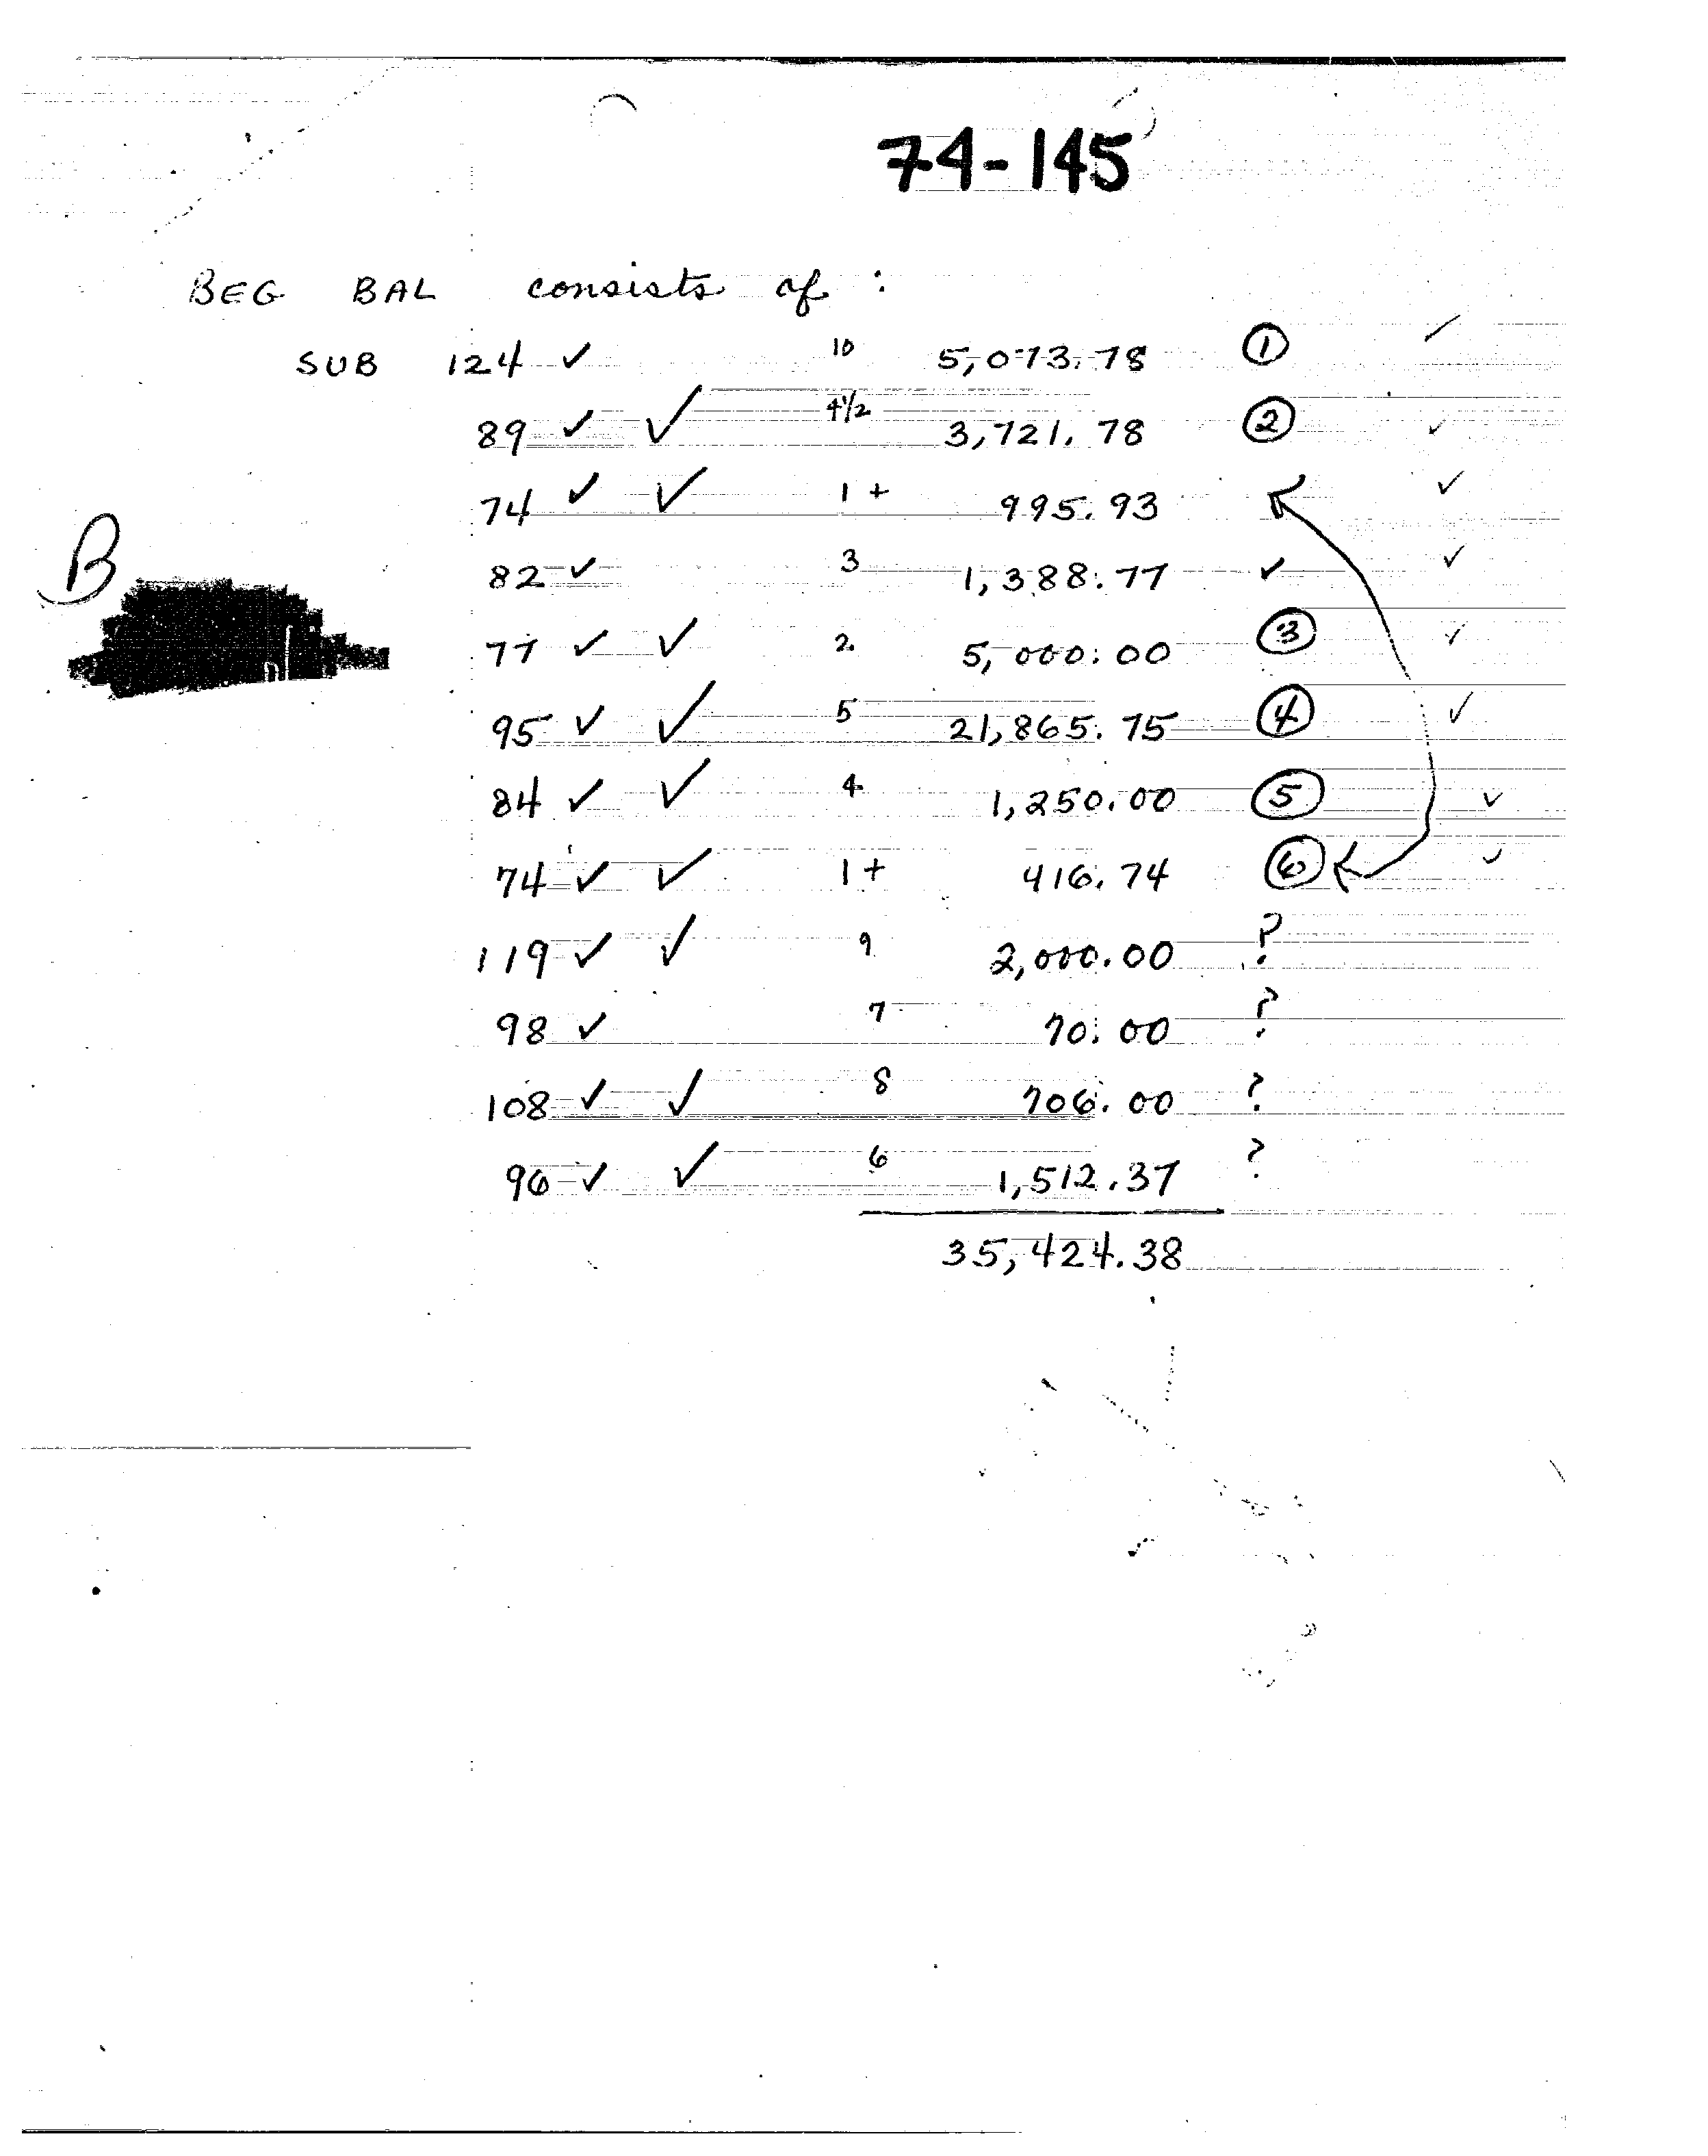 74-145
BEG BAL consists of :
SUB 124 ✓ 10 5,073.78 ① ✓
89 ✓ ✓ 4½ 3,721.78 ② ✓
74 ✓ ✓ 1+ 995.93 ✓
82 ✓ 3 1,388.77 ✓ ✓
B
77 ✓ ✓ 2. 5,000.00 ③ ✓
95 ✓ ✓ 5 21,865.75 ④ ✓
84 ✓ ✓ 4 1,250.00 ⑤ ✓
74 ✓ ✓ 1+ 416.74 ⑥ ✓
119 ✓ ✓ 9 2,000.00 ?
98 ✓ 7 70.00 ?
108 ✓ ✓ 8 706.00 ?
96 ✓ ✓ 6 1,512.37 ?
35,424.38